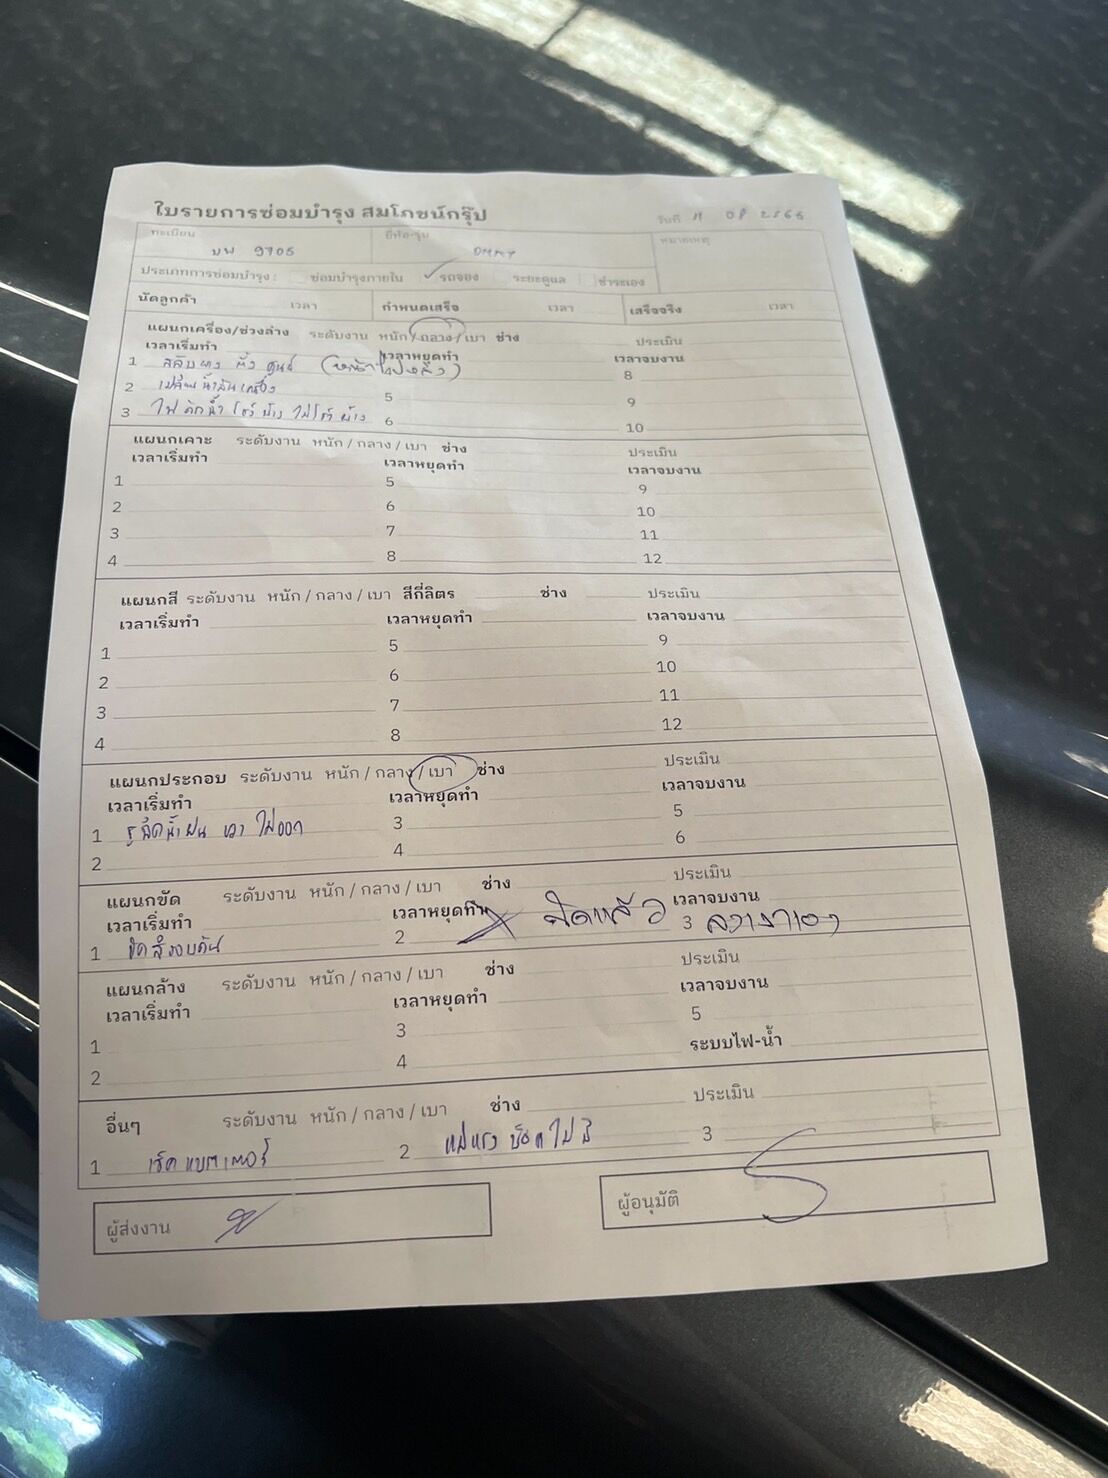 ใบรายการซ่อมบำรุง สมโภชน์กรุ๊ป
วันที่ 11 08 2566
ทะเบียน ยี่ห้อ-รุ่น หมายเหตุ
9705
ประเภทการซ่อมบำรุง : ซ่อมบำรุงภายใน ✓ รถจอง ระยะดูแล ชำระเอง
นัดลูกค้า เวลา กำหนดเสร็จ เวลา เสร็จจริง เวลา
แผนกเครื่อง/ช่วงล่าง ระดับงาน หนัก / กลาง / เบา ช่าง ประเมิน
เวลาเริ่มทำ เวลาหยุดทำ เวลาจบงาน
1 สลับยาง ตั้ง ศูนย์ (หน้าไปหลัง) 8
2 เปลี่ยนน้ำมันเครื่อง 5 9
3 ไฟ โชว์บ้าง ไม่โชว์ บ้าง 6 10
แผนกเคาะ ระดับงาน หนัก / กลาง / เบา ช่าง ประเมิน
เวลาเริ่มทำ เวลาหยุดทำ เวลาจบงาน
1 5 9
2 6 10
3 7 11
4 8 12
แผนกสี ระดับงาน หนัก / กลาง / เบา สีกี่ลิตร ช่าง ประเมิน
เวลาเริ่มทำ เวลาหยุดทำ เวลาจบงาน
1 5 9
2 6 10
3 7 11
4 8 12
แผนกประกอบ ระดับงาน หนัก / กลาง / เบา ช่าง ประเมิน
เวลาเริ่มทำ เวลาหยุดทำ เวลาจบงาน
1 รูฉีดน้ำฝน ไม่ออก 3 5
2 4 6
แผนกขัด ระดับงาน หนัก / กลาง / เบา ช่าง ประเมิน
เวลาเริ่มทำ เวลาหยุดทำ เวลาจบงาน
1 ขัดสีรอบคัน 2 3
แผนกล้าง ระดับงาน หนัก / กลาง / เบา ช่าง ประเมิน
เวลาเริ่มทำ เวลาหยุดทำ เวลาจบงาน
1 3 5
2 4 ระบบไฟ-น้ำ
อื่นๆ ระดับงาน หนัก / กลาง / เบา ช่าง ประเมิน
1 เช็คแบตเตอรี่ 2 แม่แรง ไม่มี 3
ผู้ส่งงาน ผู้อนุมัติ